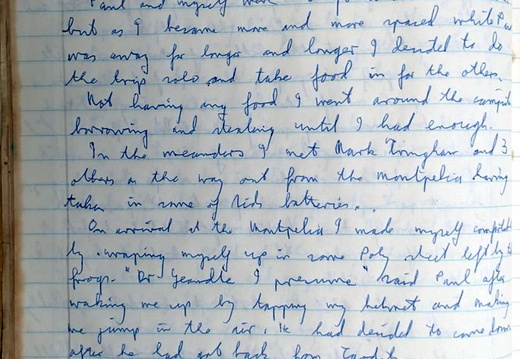 Paul and myself were
but as I became more and more spaced while Paul
was away for longer and longer I decided to do
the trip solo and take food in for the others.
Not having any food I went around the campsite
borrowing and stealing until I had enough.
In the meanders I met Mark Tringham and 3
others on the way out from the Montpelia having
taken in some of Sids batteries..
On arrival at the Montpelia I made myself comfortable
by wraping myself up in some Poly sheet left by the
frogs. "Dr Yeandle I presume" said Paul after
waking me up by tapping my helmet and making
me jump in the air. He had decided to come down
after he had got back from